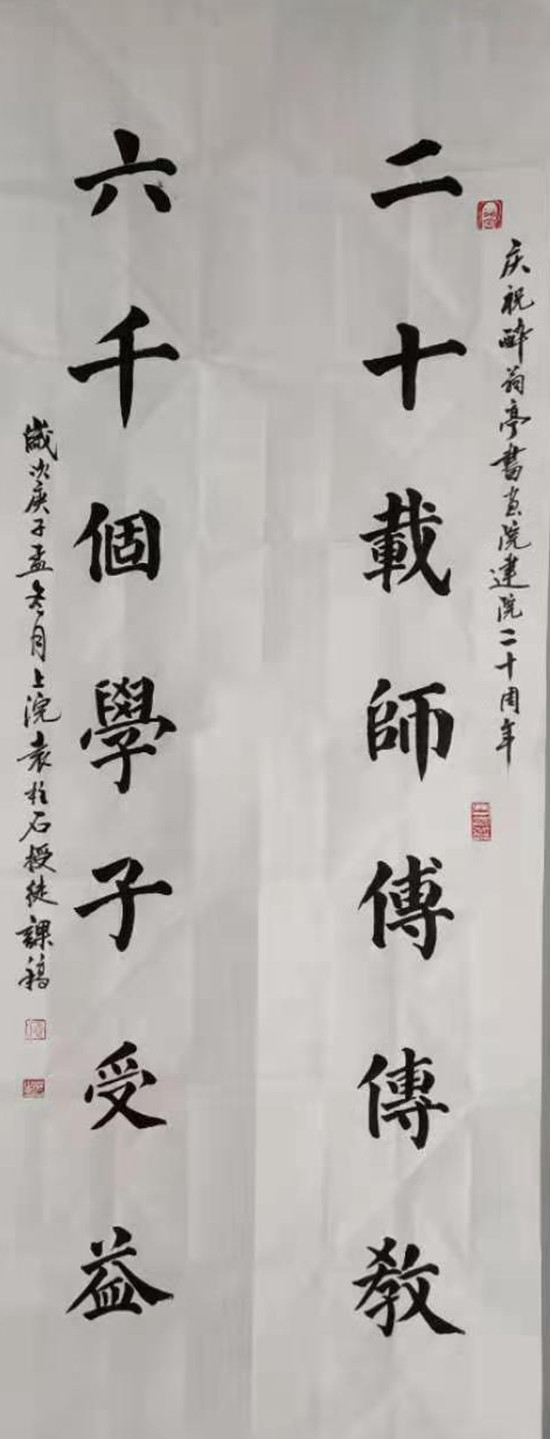 庆祝醉翁亭書画院建院二十周年
二十載師傅傳教
六千個學子受益
歲次庚子孟冬月上浣袁柱石授徒課稿